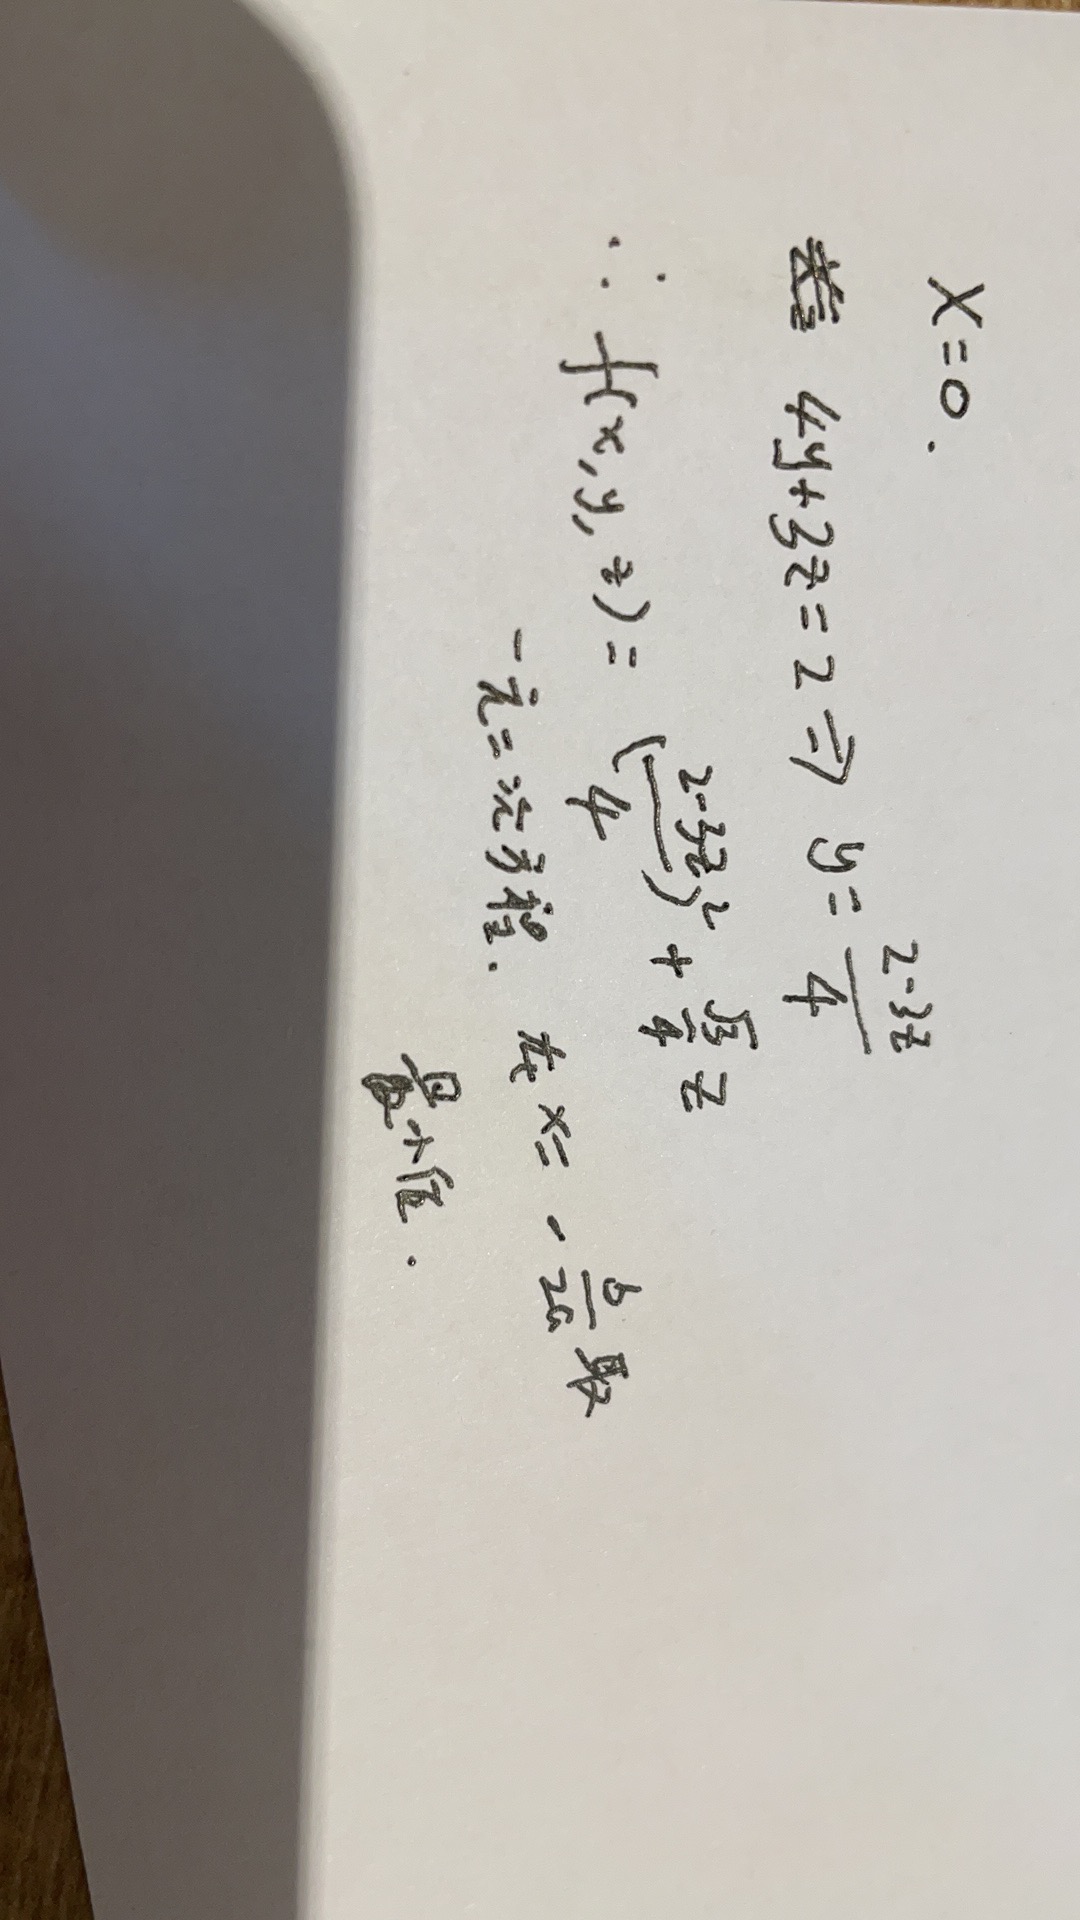 X=0.
4y+3z=2 ⇒ y= (2-3z)/4
∴ f(x,y,z)= ((2-3z)/4)² + (√3/4) z
一元二次方程. 在 x= - b/2a 取
最小值.